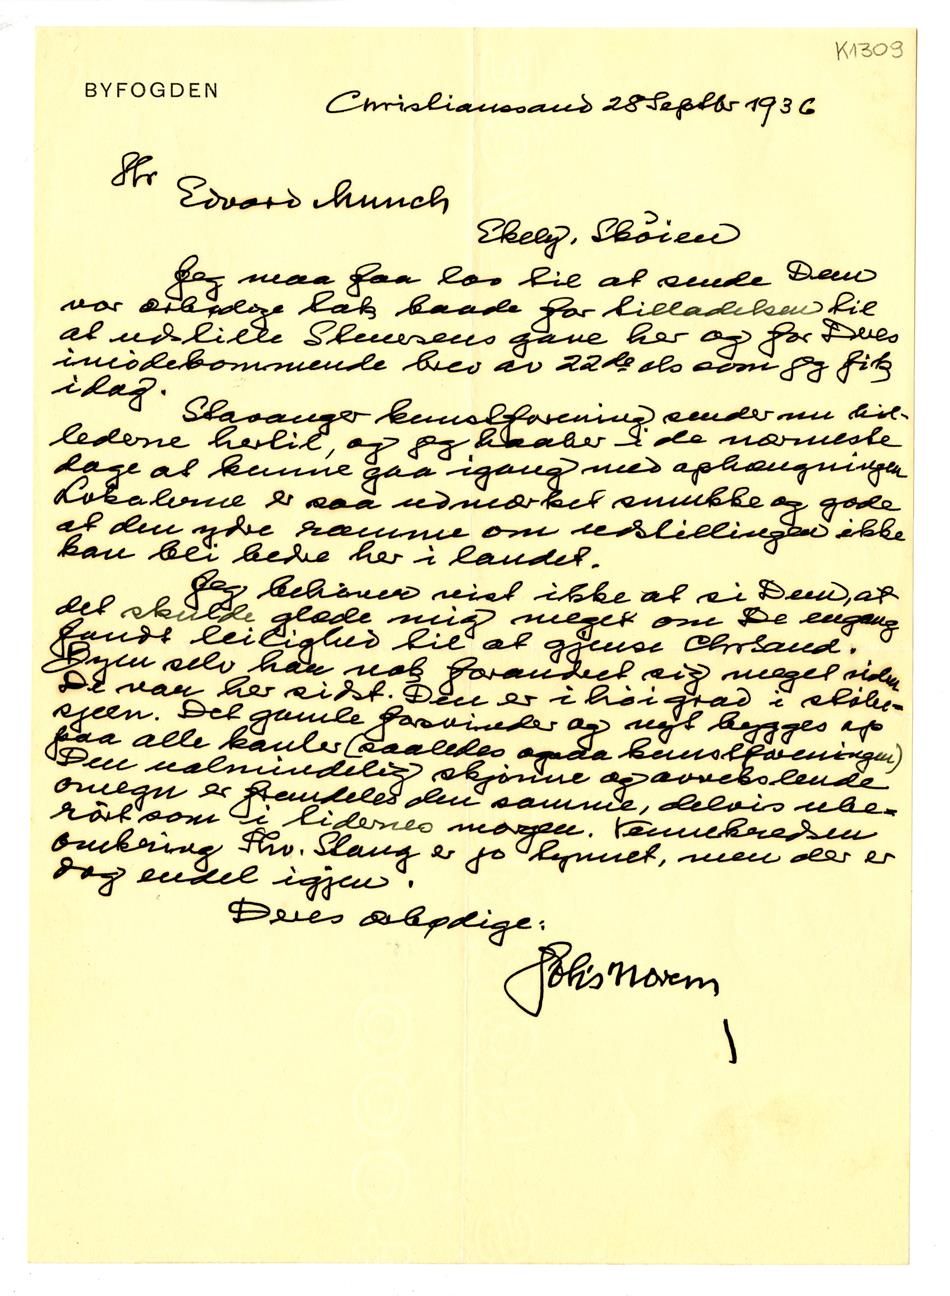 K1309
BYFOGDEN
Christianssand 28 Septbr 1936
Hr
Edvard Munch
Ekely, Sköien
Jeg maa faa lov til at sende Dem
vor ærbødige tak baade for tilladelsen til
at udstille Stenersens gave her og for Deres
imödekommende brev av 22de ds som jeg fik
idag.
Stavanger kunstforening sender nu bil-
lederne hertil, og jeg haaber i de nærmeste
dage at kunne gaa igang med ophængningen
Lokalerne er saa udmærket smukke og gode
at den ydre ramme om udstillingen ikke
kan bli bedre her i landet.
Jeg behöver vist ikke at si Dem, at
det skulde glæde mig meget om De engang
fandt leilighed til at gjense Chrsand.
Byen selv har nok forandret sig meget siden
De var her sidst. Den er i höi grad i støbe-
skjeen. Det gamle forsvinder og nyt bygges op
paa alle kanter (saaledes ogsaa kunstforeningen)
Den ualmindelig skjönne og avvekslende
omegn er fremdeles den samme, delvis ube-
rört som i tidernes morgen. Vennekredsen
omkring Thv. Stang er jo tynnet, men der er
dog endel igjen.
Deres ærbødige: